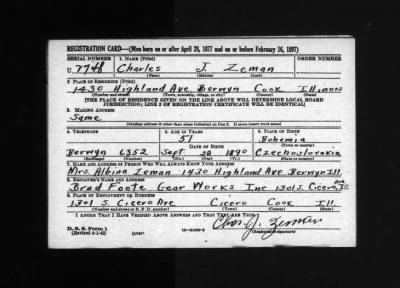 REGISTRATION CARD—(Men born on or after April 28, 1877 and on or before February 16, 1897)
SERIAL NUMBER 1. NAME (Print) ORDER NUMBER
U 2748 Charles J. Zeman
(First) (Middle) (Last)
2. PLACE OF RESIDENCE (Print)
1430 Highland Ave. Berwyn Cook Illinois
(Number and street) (Town, township, village, or city) (County) (State)
[THE PLACE OF RESIDENCE GIVEN ON THE LINE ABOVE WILL DETERMINE LOCAL BOARD
JURISDICTION; LINE 2 OF REGISTRATION CERTIFICATE WILL BE IDENTICAL]
3. MAILING ADDRESS
Same
[Mailing address if other than place indicated on line 2. If same insert word same]
4. TELEPHONE 5. AGE IN YEARS 6. PLACE OF BIRTH
51 Bohemia
DATE OF BIRTH (Town or county)
Berwyn 6352 Sept. 28 1890 Czechoslovakia
(Exchange) (Number) (Mo.) (Day) (Yr.) (State or country)
7. NAME AND ADDRESS OF PERSON WHO WILL ALWAYS KNOW YOUR ADDRESS
Mrs. Albina Zeman 1430 Highland Ave. Berwyn Ill.
8. EMPLOYER'S NAME AND ADDRESS
Brad Foote Gear Works Inc 1301 S. Cicero, Ave Ill.
9. PLACE OF EMPLOYMENT OR BUSINESS
1301 S. Cicero Ave Cicero Cook Ill.
(Number and street or R. F. D. number) (Town) (County) (State)
I AFFIRM THAT I HAVE VERIFIED ABOVE ANSWERS AND THAT THEY ARE TRUE.
D. S. S. Form 1
(Revised 4-1-42) Chas. J. Zeman
(Registrant's signature)